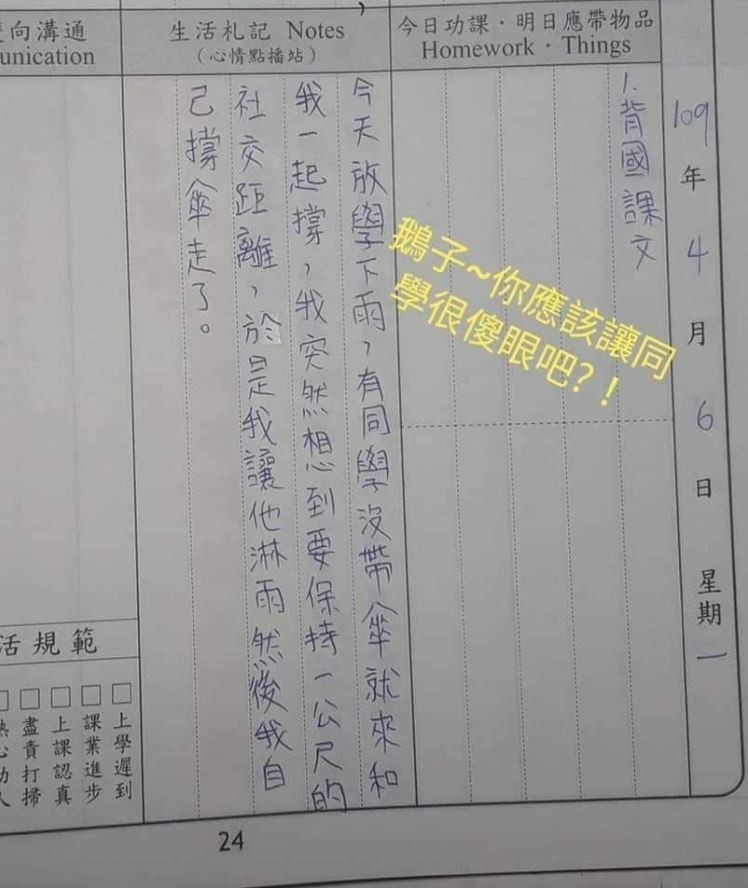 雙向溝通
unication
生活札記 Notes
（心情點播站）
今日功課・明日應帶物品
Homework・Things
109年4月6日 星期一
1.背國課文
今天放學下雨，有同學沒帶傘就來和
我一起撐，我突然想到要保持一公尺的
社交距離，於是我讓他淋雨然後我自
己撐傘走了。
鵝子~你應該讓同
學很傻眼吧?！
活規範
□上學遲到
□課業進步
□上課認真
□盡責打掃
□熱心助人
24